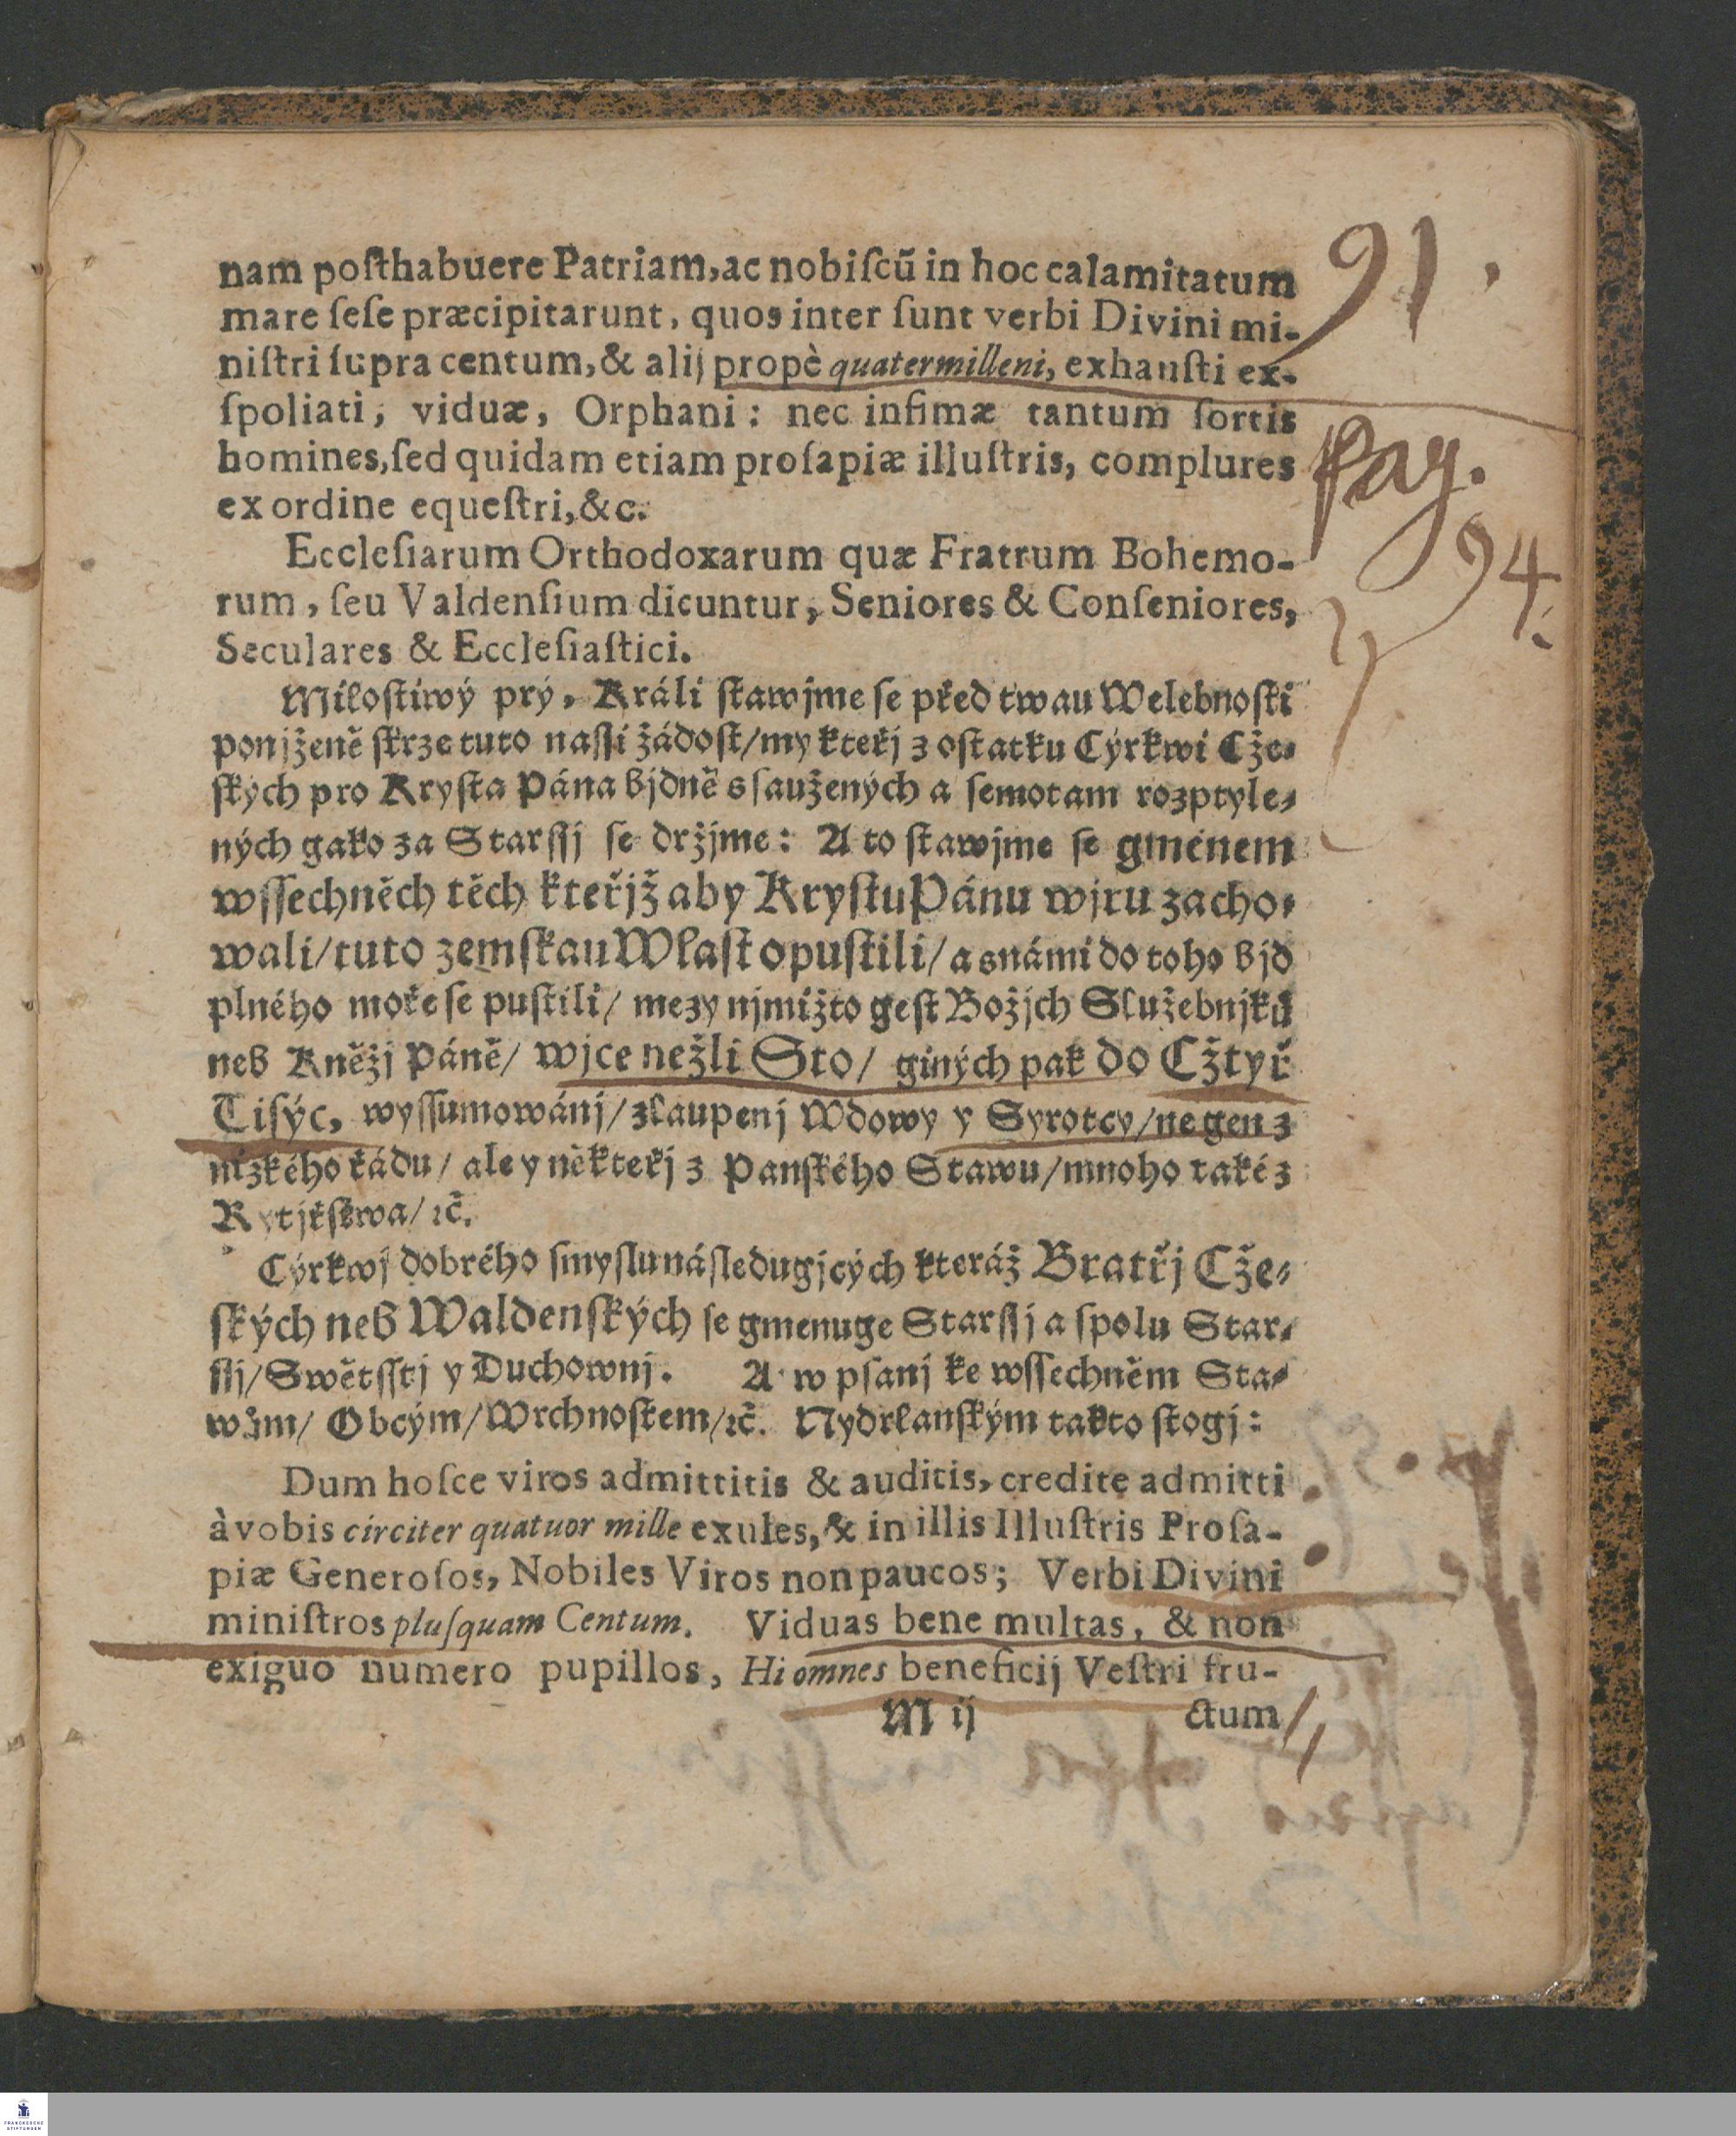 91.
nam poſthabuere Patriam, ac nobiſcū in hoc calamitatum
mare ſeſe præcipitarunt, quos inter ſunt verbi Divini mi-
niſtri ſupra centum, & alij propè quatermilleni, exhauſti ex-
ſpoliati, viduæ, Orphani: nec infimæ tantum ſortis
homines, ſed quidam etiam proſapiæ illuſtris, complures
ex ordine equeſtri, &c.
pag.
94.
Eccleſiarum Orthodoxarum quæ Fratrum Bohemo-
rum, ſeu Valdenſium dicuntur, Seniores & Conſeniores,
Seculares & Eccleſiaſtici.
Miloſtiwý prý, Králi ſtawjme ſe před twau Welebnoſti
ponjženě ſkrze tuto naſſi žádoſt/ my kteřj z oſtatku Cýrkwi Cže-
ſkých pro Kryſta Pána bjdně sſaužených a ſemotam rozptyle-
ných gako za Starſſj ſe držjme: A to ſtawjme ſe gménem
wſſechněch těch kteřjž aby Kryſtu Pánu wjru zacho-
wali/ tuto zemſkau Wlaſt opuſtili/ a snámi do toho bjd
plného moře ſe puſtili/ mezy njmižto geſt Božjch Služebnjků
neb Kněžj Páně/ wjce nežli Sto/ giných pak do Cžtyř
Tiſýc, wyſſumowánj/ zlaupenj Wdowy y Syrotcy/ ne gen z
nízkého řádu/ ale y někteřj z Panſkého Stawu/ mnoho také z
Rytjřſtwa/ ꝛč.
Cýrkwj dobrého ſmyſlu náſledugjcých kteráž Bratřj Cže-
ſkých neb Waldenſkých ſe gmenuge Starſſj a ſpolu Star-
ſſj/ Swětſſtj y Duchownj. A w pſanj ke wſſechněm Sta-
wům/ Obcým/ Wrchnoſtem/ ꝛč. Nydrlanſkým takto ſtogj:
Dum hoſce viros admittitis & auditis, credite admitti
à vobis circiter quatuor mille exules, & in illis Illuſtris Proſa-
piæ Generoſos, Nobiles Viros non paucos; Verbi Divini
miniſtros pluſquam Centum. Viduas bene multas, & non
exiguo numero pupillos, Hi omnes beneficij Veſtri fru-
M ij ctum
FRANCKESCHE
STIFTUNGEN